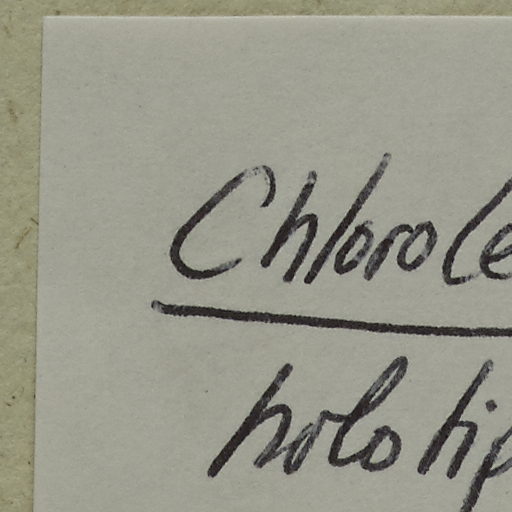 Chlorole
holotip